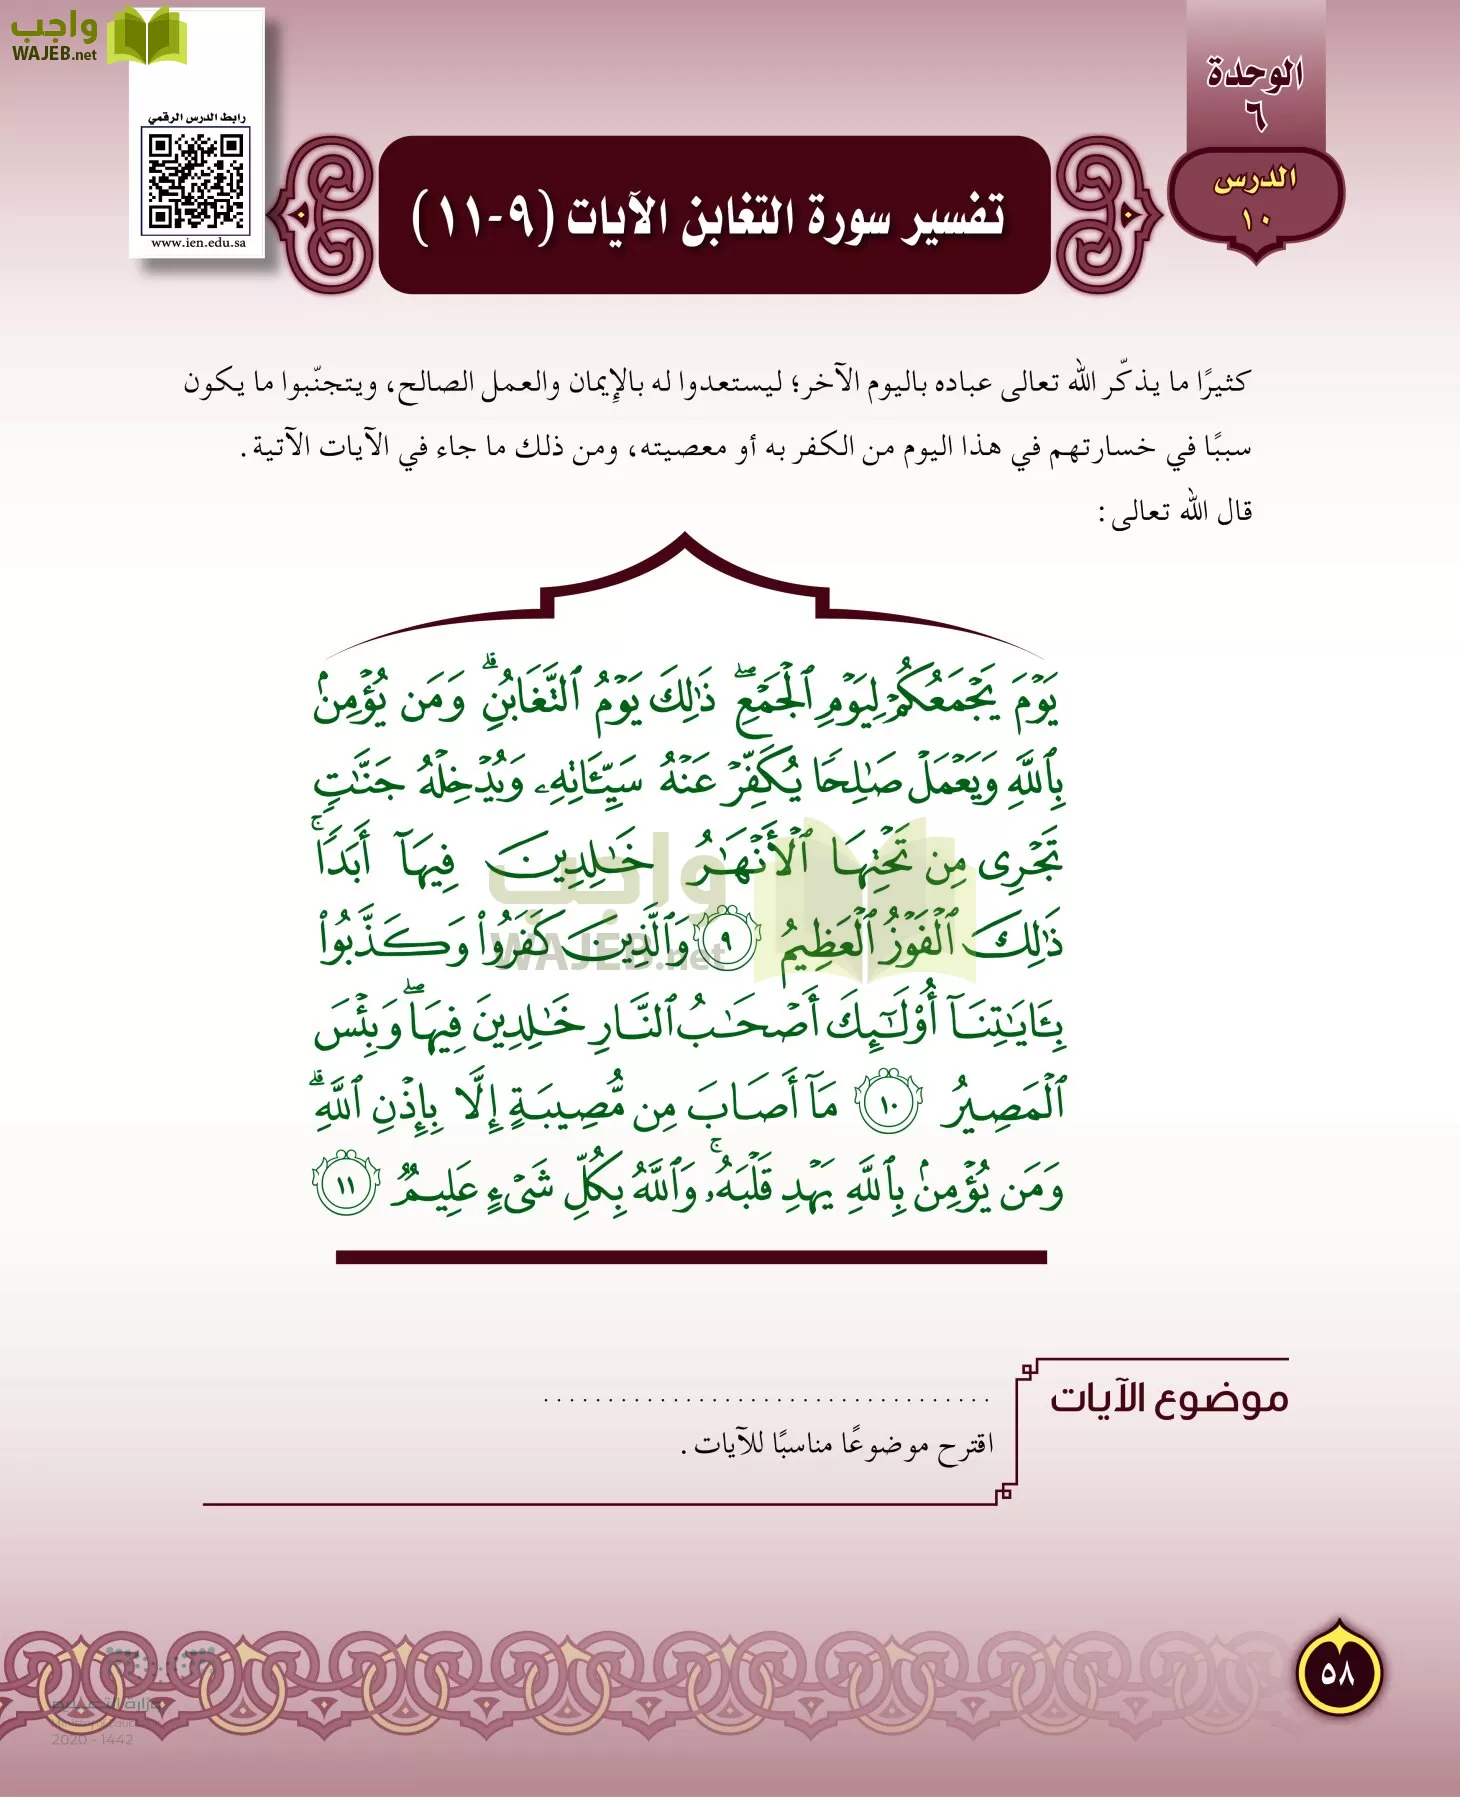 واجب
WAJEB.net
الوحدة
٦
الدرس
١٠
رابط الدرس الرقمي
www.ien.edu.sa
تفسير سورة التغابن الآيات (٩-١١)
كثيرًا ما يذكّر الله تعالى عباده باليوم الآخر؛ ليستعدوا له بالإيمان والعمل الصالح، ويتجنّبوا ما يكون
سببًا في خسارتهم في هذا اليوم من الكفر به أو معصيته، ومن ذلك ما جاء في الآيات الآتية.
قال الله تعالى:
يَوْمَ يَجْمَعُكُمْ لِيَوْمِ ٱلْجَمْعِۖ ذَٰلِكَ يَوْمُ ٱلتَّغَابُنِۗ وَمَن يُؤْمِنۢ
بِٱللَّهِ وَيَعْمَلْ صَٰلِحًا يُكَفِّرْ عَنْهُ سَيِّـَٔاتِهِۦ وَيُدْخِلْهُ جَنَّٰتٍ
تَجْرِى مِن تَحْتِهَا ٱلْأَنْهَٰرُ خَٰلِدِينَ فِيهَآ أَبَدًاۚ
ذَٰلِكَ ٱلْفَوْزُ ٱلْعَظِيمُ ٩ وَٱلَّذِينَ كَفَرُوا۟ وَكَذَّبُوا۟
بِـَٔايَٰتِنَآ أُو۟لَٰٓئِكَ أَصْحَٰبُ ٱلنَّارِ خَٰلِدِينَ فِيهَاۖ وَبِئْسَ
ٱلْمَصِيرُ ١٠ مَآ أَصَابَ مِن مُّصِيبَةٍ إِلَّا بِإِذْنِ ٱللَّهِۗ
وَمَن يُؤْمِنۢ بِٱللَّهِ يَهْدِ قَلْبَهُۥۚ وَٱللَّهُ بِكُلِّ شَىْءٍ عَلِيمٌ ١١
واجب
WAJEB.net
موضوع الآيات
..................................
اقترح موضوعًا مناسبًا للآيات.
٥٨
وزارة التعليم
Ministry of Education
2020 - 1442